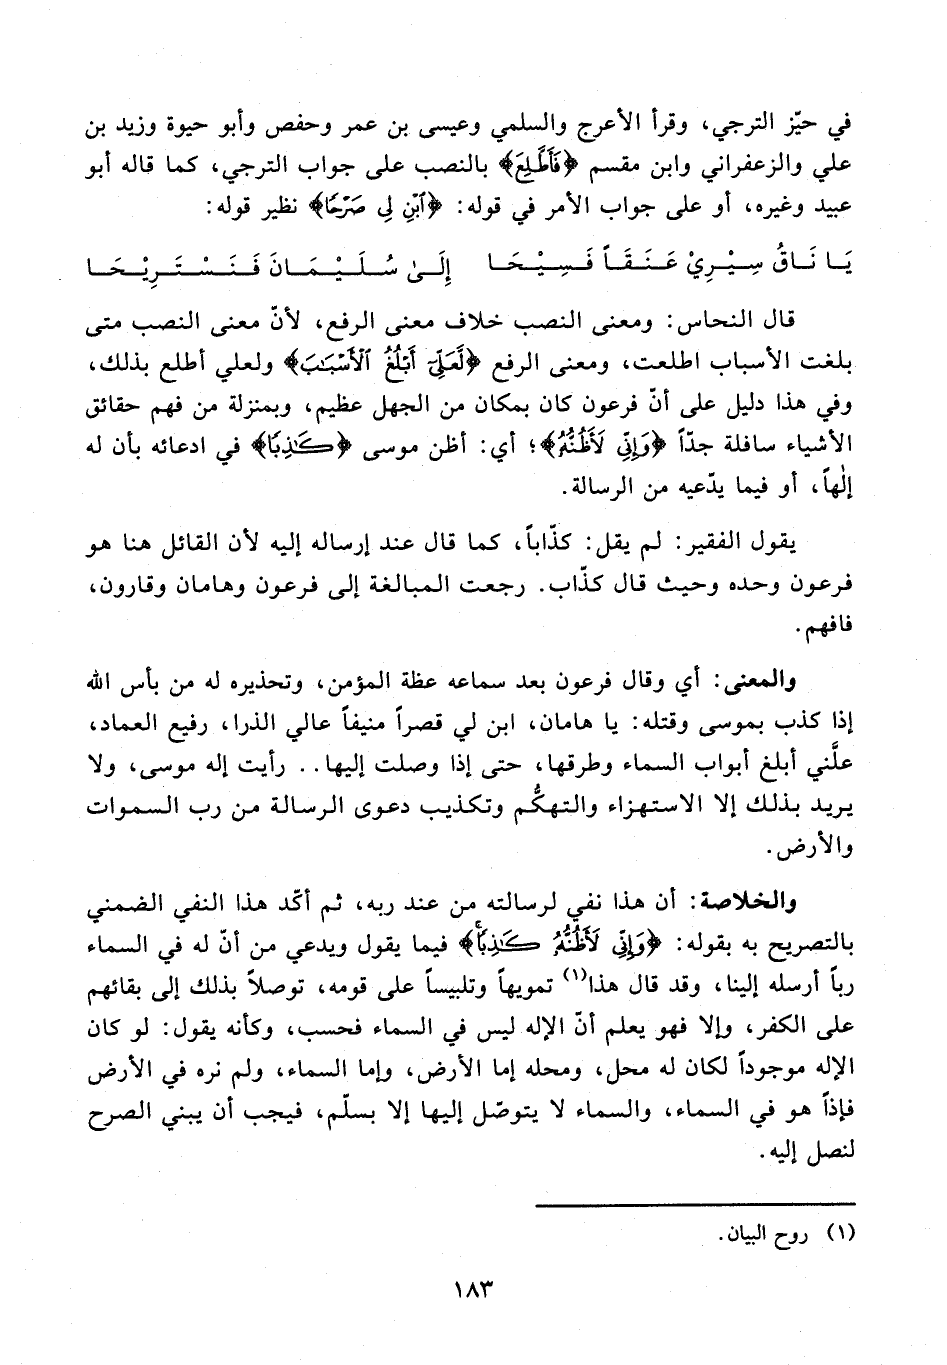 في حيّز الترجي، وقرأ الأعرج والسلمي وعيسى بن عمر وحفص وأبو حيوة وزيد بن
علي والزعفراني وابن مقسم ﴿فَأَطَّلِعَ﴾ بالنصب على جواب الترجي، كما قاله أبو
عبيد وغيره، أو على جواب الأمر في قوله: ﴿ٱبْنِ لِى صَرْحًا﴾ نظير قوله:
يَا نَاقُ سِيْرِيْ عَنَقَاً فَسِيْحَا إِلَىٰ سُلَيْمَانَ فَنَسْتَرِيْحَا
قال النحاس: ومعنى النصب خلاف معنى الرفع، لأنّ معنى النصب متى
بلغت الأسباب اطلعت، ومعنى الرفع ﴿لَّعَلِّىٓ أَبْلُغُ ٱلْأَسْبَٰبَ﴾ ولعلي أطلع بذلك،
وفي هذا دليل على أنّ فرعون كان بمكان من الجهل عظيم، وبمنزلة من فهم حقائق
الأشياء سافلة جدّاً ﴿وَإِنِّى لَأَظُنُّهُۥ﴾؛ أي: أظن موسى ﴿كَٰذِبًا﴾ في ادعائه بأن له
إلٰهاً، أو فيما يدّعيه من الرسالة.
يقول الفقير: لم يقل: كذّاباً، كما قال عند إرساله إليه لأن القائل هنا هو
فرعون وحده وحيث قال كذّاب. رجعت المبالغة إلى فرعون وهامان وقارون،
فافهم.
والمعنى: أي وقال فرعون بعد سماعه عظة المؤمن، وتحذيره له من بأس الله
إذا كذب بموسى وقتله: يا هامان، ابن لي قصراً منيفاً عالي الذرا، رفيع العماد،
علَّني أبلغ أبواب السماء وطرقها، حتى إذا وصلت إليها.. رأيت إله موسى، ولا
يريد بذلك إلا الاستهزاء والتهكُّم وتكذيب دعوى الرسالة من رب السموات
والأرض.
والخلاصة: أن هذا نفي لرسالته من عند ربه، ثم أكّد هذا النفي الضمني
بالتصريح به بقوله: ﴿وَإِنِّى لَأَظُنُّهُۥ كَٰذِبًاۚ﴾ فيما يقول ويدعي من أنّ له في السماء
رباً أرسله إلينا، وقد قال هذا(١) تمويهاً وتلبيساً على قومه، توصلاً بذلك إلى بقائهم
على الكفر، وإلا فهو يعلم أنّ الإله ليس في السماء فحسب، وكأنه يقول: لو كان
الإله موجوداً لكان له محل، ومحله إما الأرض، وإما السماء، ولم نره في الأرض
فإذاً هو في السماء، والسماء لا يتوصّل إليها إلا بسلّم، فيجب أن يبني الصرح
لنصل إليه.
(١) روح البيان.
١٨٣